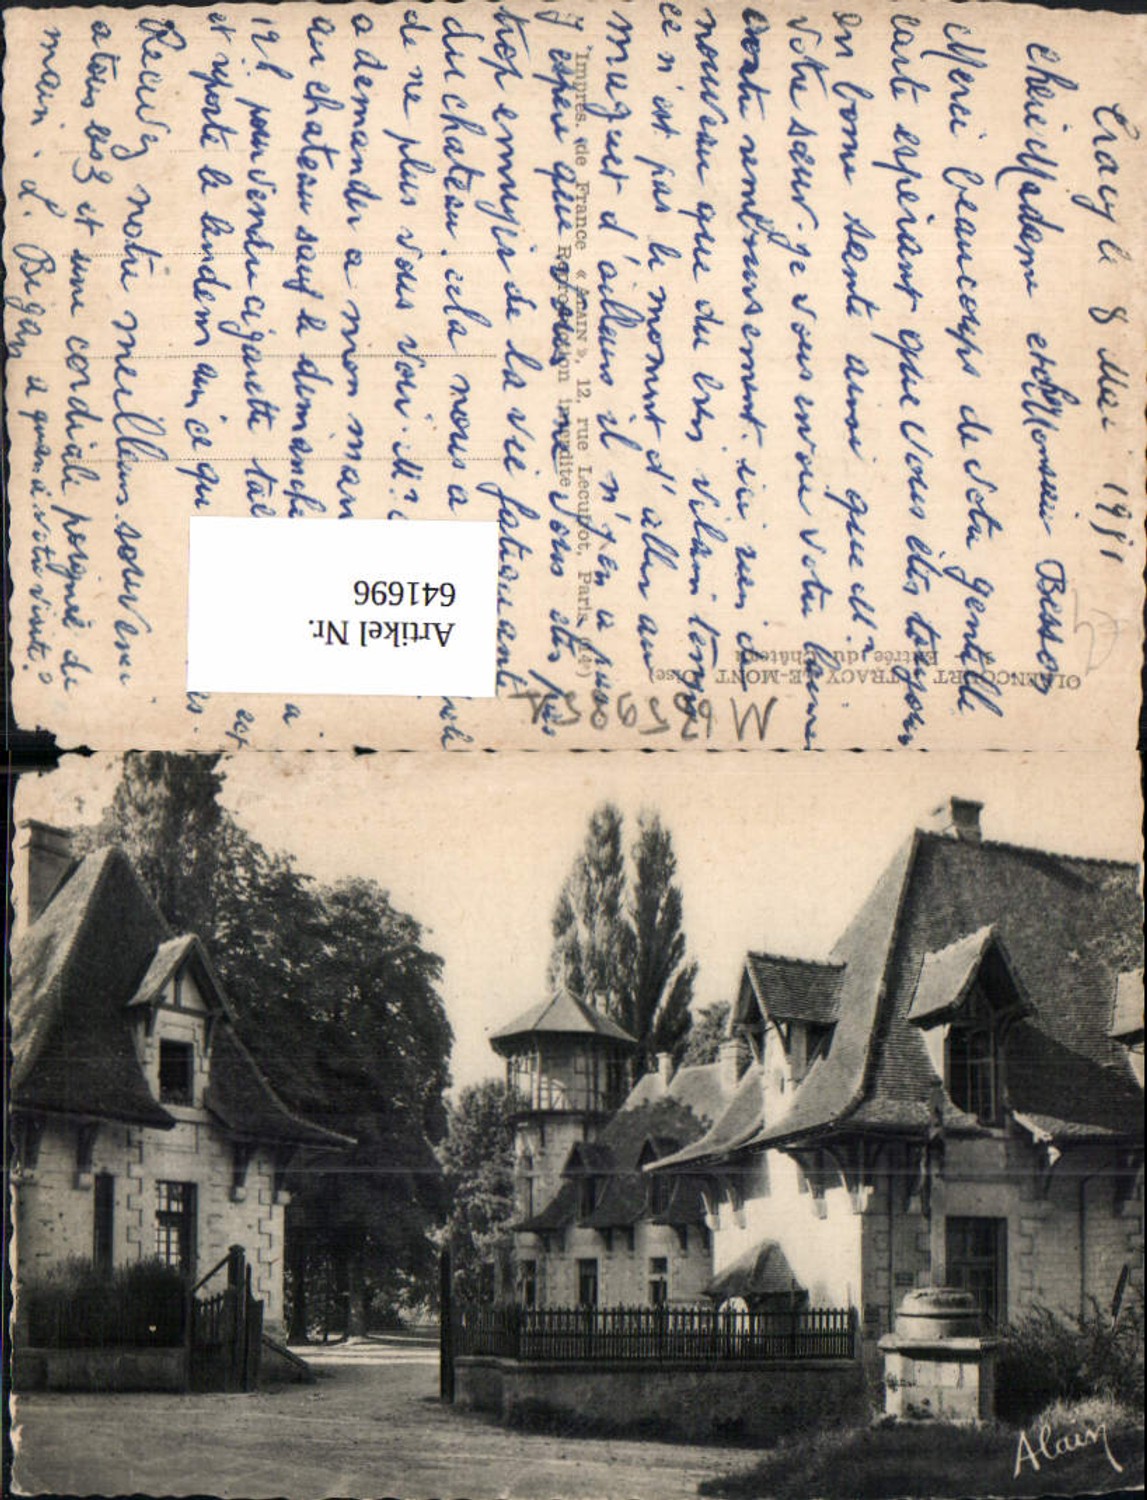 Tracy le 8 Mai 1951
Chère Madame et Monsieur Besson
Merci beaucoup de votre gentille
carte espérant que vous êtes toujours
en bonne santé ainsi que Mr
votre sœur. je vous envoie votre laine
contre remboursement. ici rien de
nouveau que du très vilain temps
ce n'est pas le moment d'aller au
muguet d'ailleurs il n'y en a pas
J'espère que vous ne vous êtes pas
trop ennuyé de la vie fatiguante
du chateau. cela nous a
de ne plus vous voir. Mr
a demander a mon mari
au chateau sauf le dimanche
12h pour vendre cigarette
et reporte le lendemain ce qui
Recevez notre meilleur souvenir
a tous les 3 et une cordiale poignée de
main. L. Bigan a quand votre visite?
OLLENCOURT-TRACY-LE-MONT (Oise)
Entrée du Château
Imprès. de France « ALAIN », 12, rue Lecuirot, Paris (14e)
Reproduction interdite
Artikel Nr.
641696
Alain